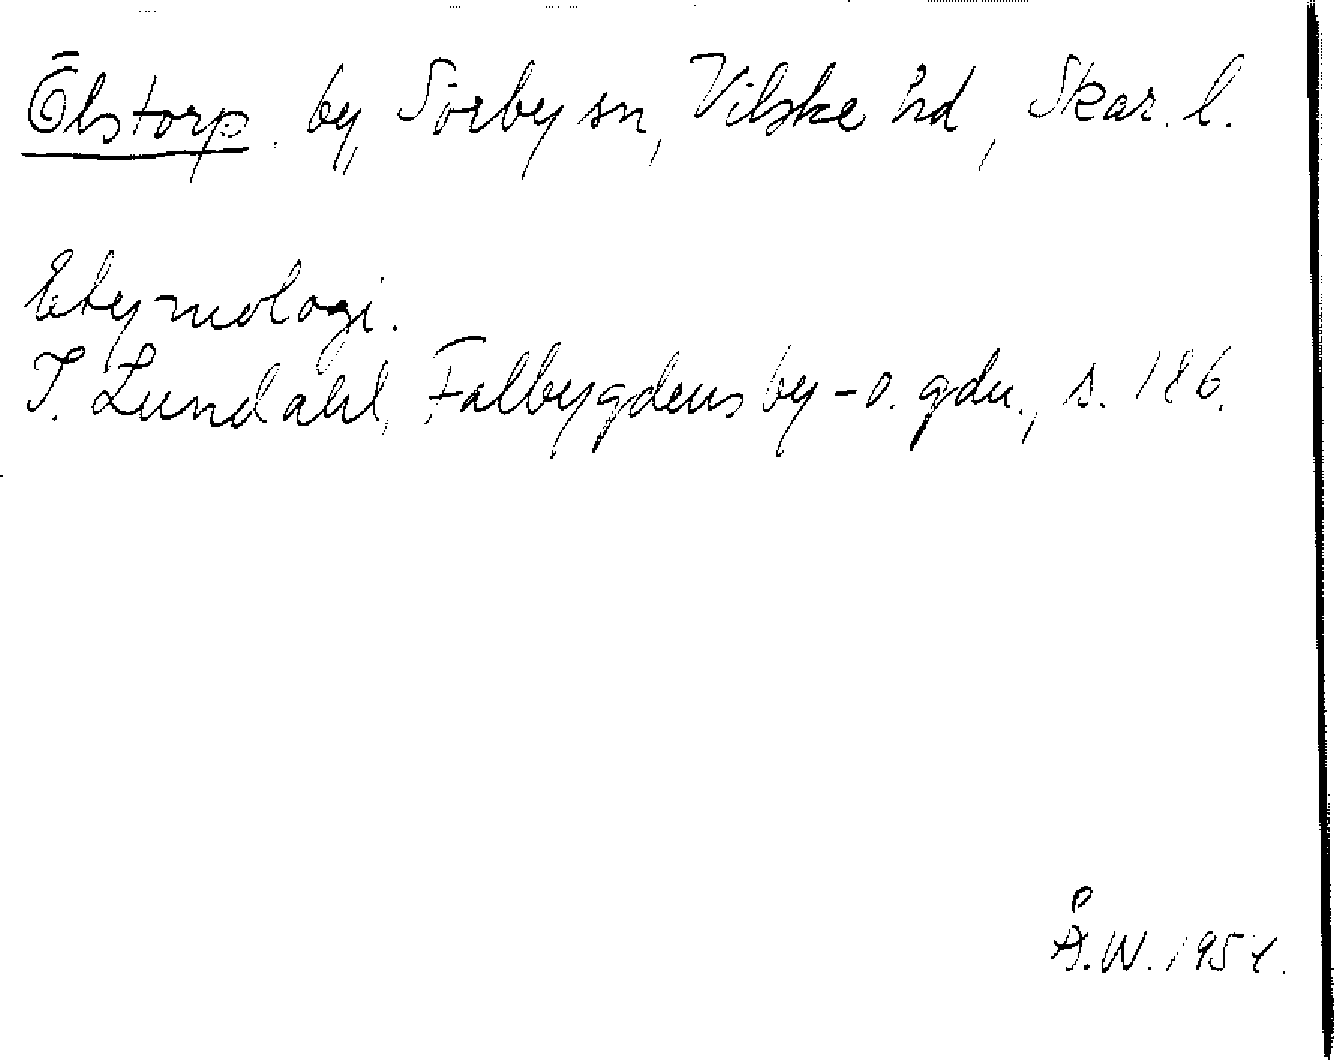 Ölstorp. by, Sörby sn, Vilske hd, Skar. l.
Etymologi.
I. Lundahl, Falbygdens by- o. gdn., s. 186.
Å.W. 1954.